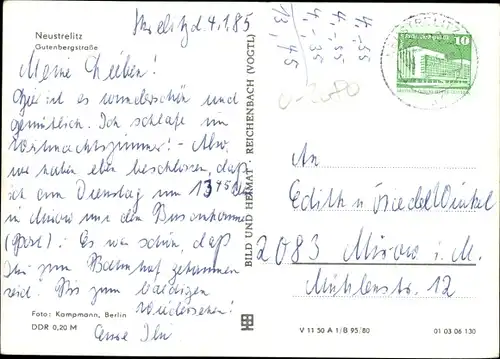 Neustrelitz
Gutenbergstraße
Strelitz d. 4.1.85
Meine Lieben!
Hier ist es wunderschön und
gemütlich. Ich schlafe im
Weihnachtszimmer! - Also,
wir haben eben beschlossen, daß
ich am Dienstag um 13 45
in Mirow mit dem Bus ankomme
(Post). Es war schön, daß
Ihr zum Bahnhof gekommen
seid! Bis zum baldigen
Wiedersehen!
Eure
Foto: Kampmann, Berlin
DDR 0,20 M
BILD UND HEIMAT REICHENBACH (VOGTL)
4,-55
4,-35
13,45
10
An
Edith u. Friedel Winkel
2083 Mirow i. M.
Mühlenstr. 12
V 11 50 A 1/B 95/80
01 03 06 130